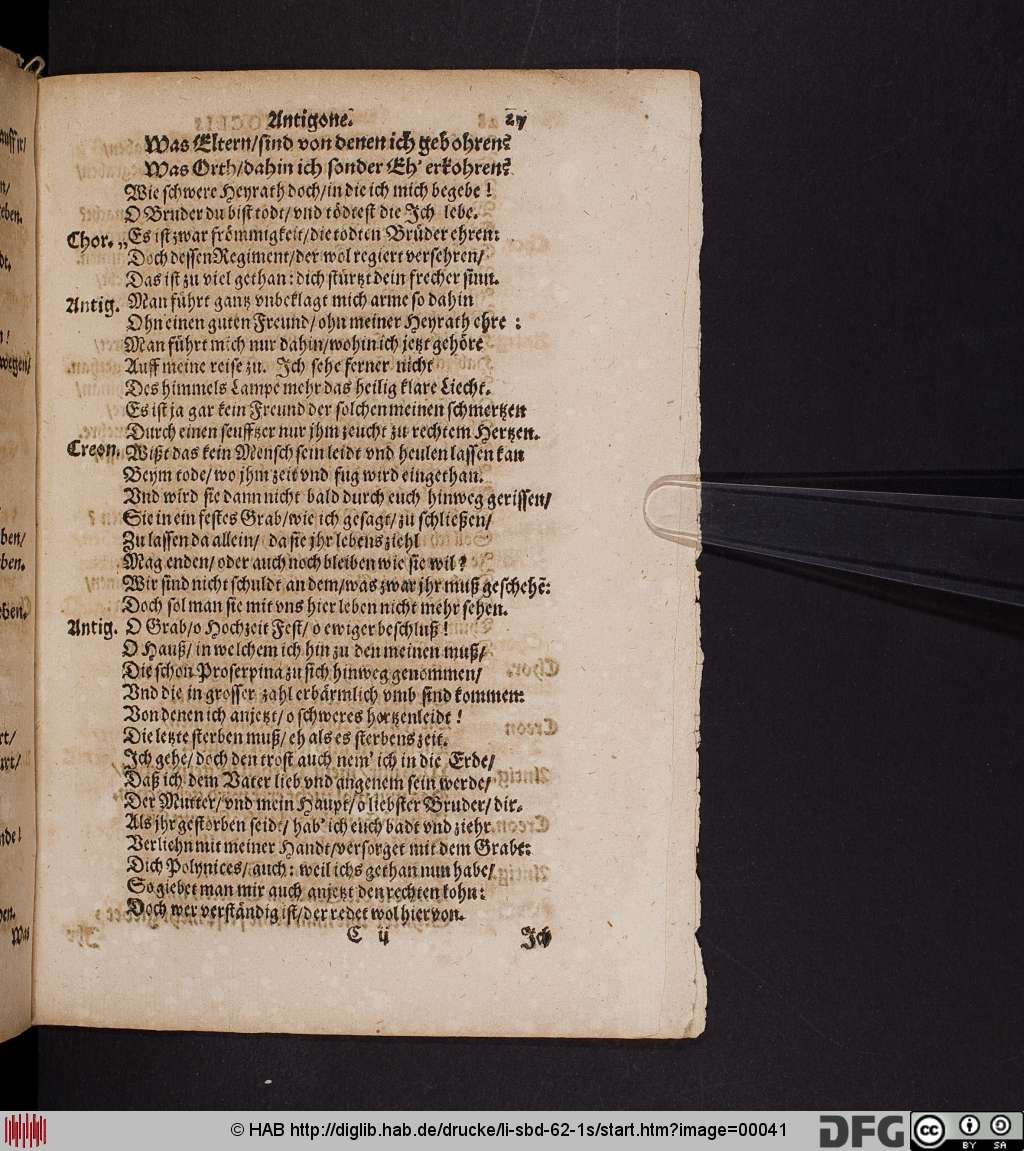 Antigone. 27
Was Eltern/sind von denen ich gebohren?
Was Orth/dahin ich sonder Eh' erkohren?
Wie schwere Heyrath doch/in die ich mich begebe!
O Bruder du bist todt/vnd tödtest die Ich lebe.
Chor. „Es ist zwar frömmigkeit/die todten Brüder ehren:
Doch dessen Regiment/der wol regiert versehren/
Das ist zu viel gethan: dich stürtzt dein frecher sinn.
Antig. Man führt gantz vnbeklagt mich arme so dahin
Ohn einen guten Freund/ohn meiner Heyrath ehre:
Man führt mich nur dahin/wohin ich jetzt gehöre
Auff meine reise zu. Ich sehe ferner nicht
Des himmels Lampe mehr das heilig klare Liecht.
Es ist ja gar kein Freund der solchen meinen schmertzen
Durch einen seufftzer nur jhm zeucht zu rechtem Hertzen.
Creon. Wißt das kein Mensch sein leidt vnd heulen lassen kan
Beym tode/wo jhm zeit vnd fug wird eingethan.
Vnd wird sie dann nicht bald durch euch hinweg gerissen/
Sie in ein festes Grab/wie ich gesagt/zu schließen/
Zu lassen da allein/ da sie jhr lebens ziehl
Mag enden/oder auch noch bleiben wie sie wil?
Wir sind nicht schuldt an dem/was zwar jhr muß geschehẽ:
Doch sol man sie mit vns hier leben nicht mehr sehen.
Antig. O Grab/o Hochzeit Fest/o ewiger beschluß!
O Hauß/in welchem ich hin zu den meinen muß/
Die schon Proserpina zu sich hinweg genommen/
Vnd die in grosser zahl erbärmlich vmb sind kommen:
Von denen ich anjetzt/o schweres hertzenleidt!
Die letzte sterben muß/eh als es sterbens zeit.
Ich gehe/doch den trost auch nem' ich in die Erde/
Daß ich dem Vater lieb vnd angenem sein werde/
Der Mutter/vnd mein Haupt/o liebster Bruder/dir.
Als jhr gestorben seidt/hab' ich euch badt vnd ziehr
Verliehn mit meiner Handt/versorget mit dem Grabe:
Dich Polynices/auch: weil ichs gethan nun habe/
So giebet man mir auch anjetzt den rechten lohn:
Doch wer verständig ist/der redet wol hiervon.
C ij Ich
© HAB http://diglib.hab.de/drucke/li-sbd-62-1s/start.htm?image=00041
DFG
cc BY SA